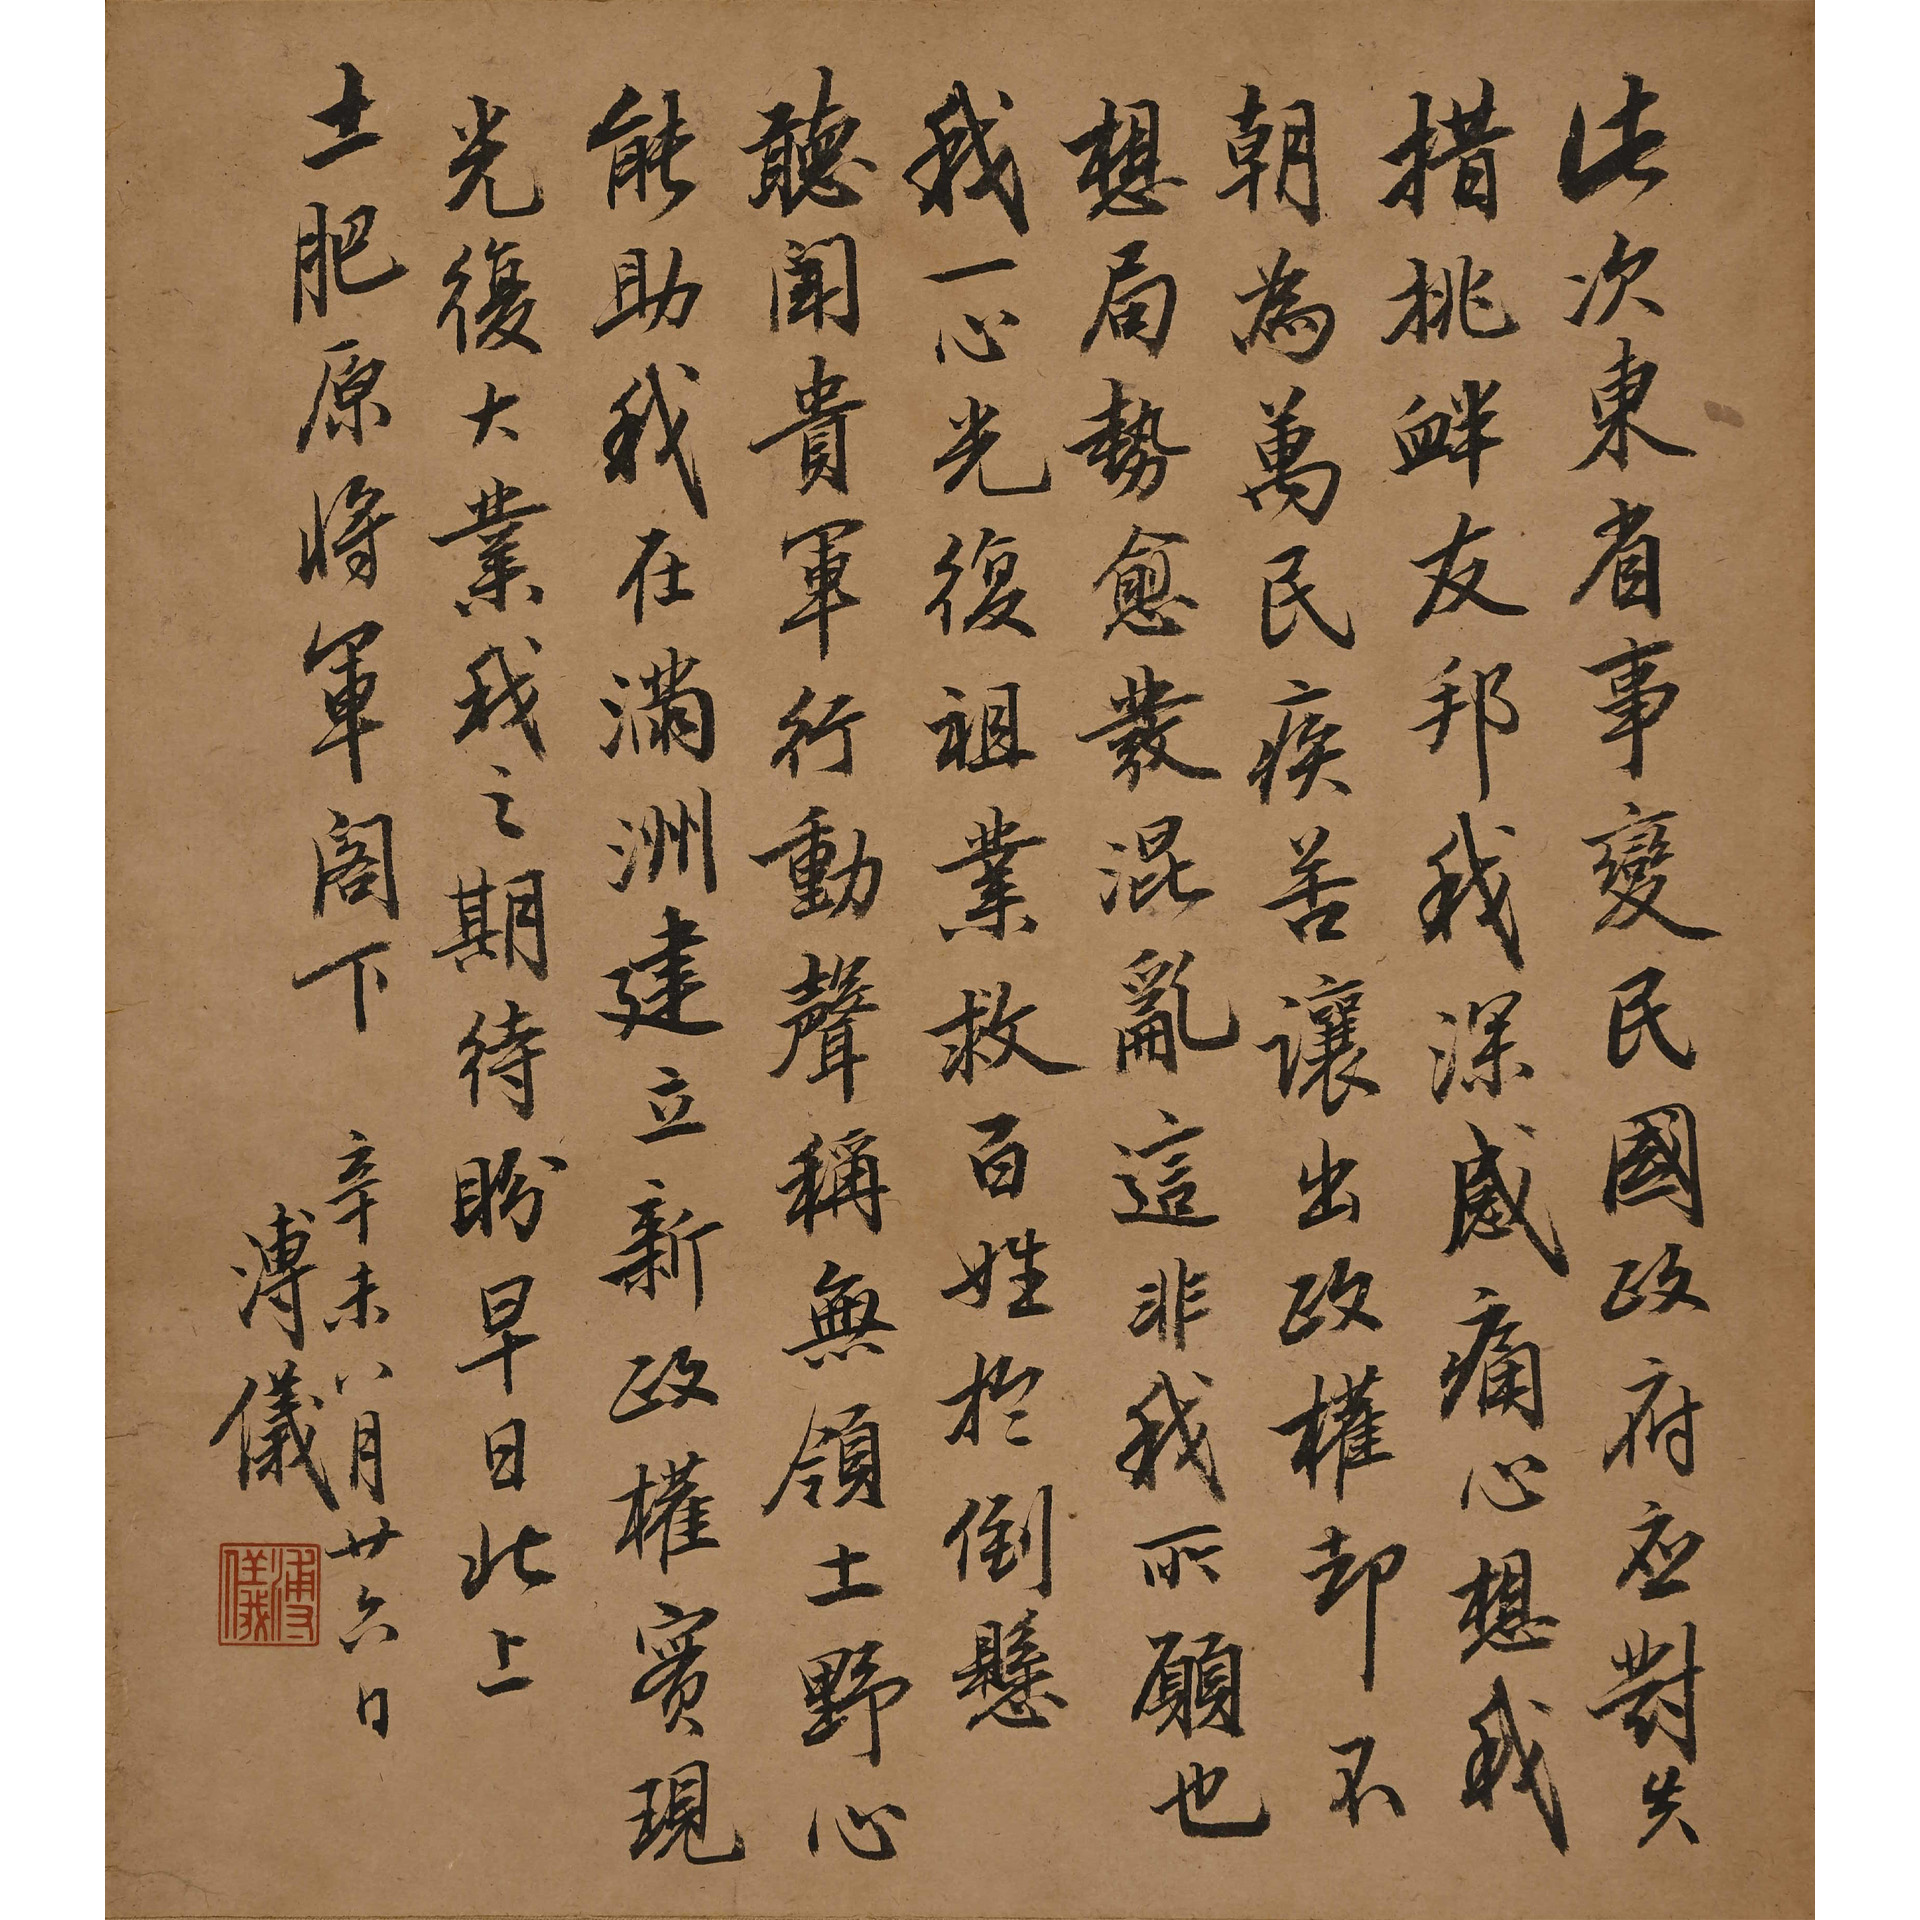 此次東省事變民國政府应對失
措挑衅友邦我深感痛心想我
朝為萬民疾苦讓出政權却不
想局勢愈發混亂這非我所願也
我一心光復祖業救百姓於倒懸
聽聞貴軍行動聲稱無領土野心
能助我在滿洲建立新政權實現
光復大業我之期待盼早日北上
土肥原將軍閣下
辛未八月廿六日
溥儀
溥儀